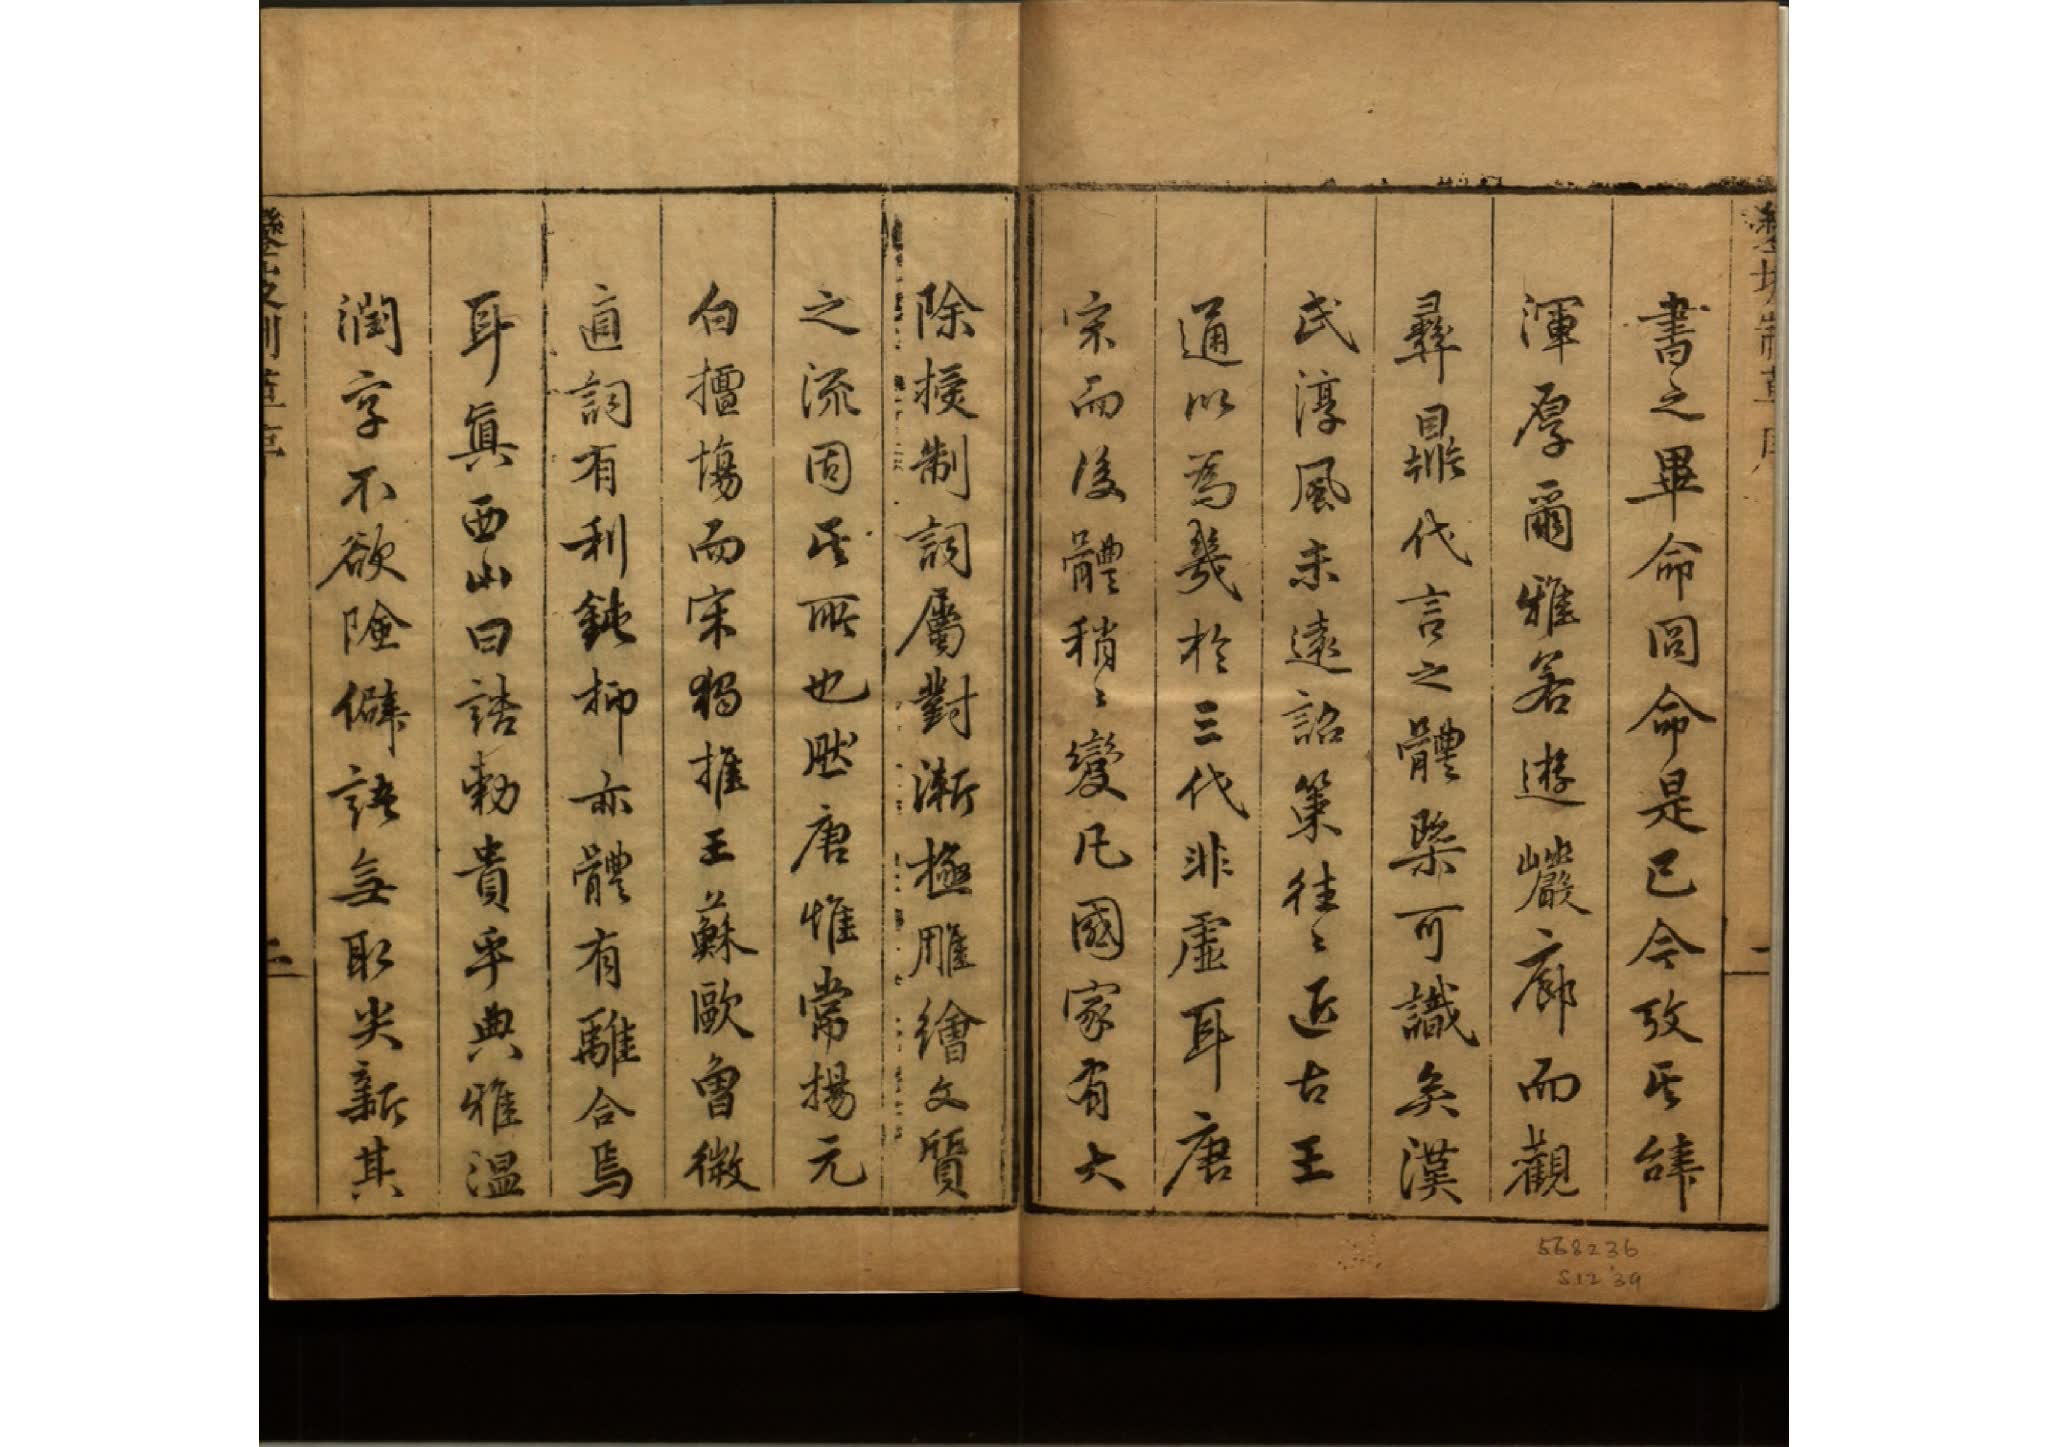 書之畢命冏命是已今攷其辭
渾厚爾雅若遊巖廊而觀
彞鼎代言之體槩可識矣漢
氏淳風未遠詔策往〻近古王
通以為幾於三代非虛耳唐
宋而後體稍〻變凡國家有大
除授制詞屬對漸極雕繪文質
之流固其所也然唐惟常楊元
白擅場而宋獨推王蘇歐曾微
直詞有利鈍抑亦體有離合焉
耳眞西山曰誥勅貴乎典雅温
潤字不欲險僻語無取尖新其
二
568236
S12'39